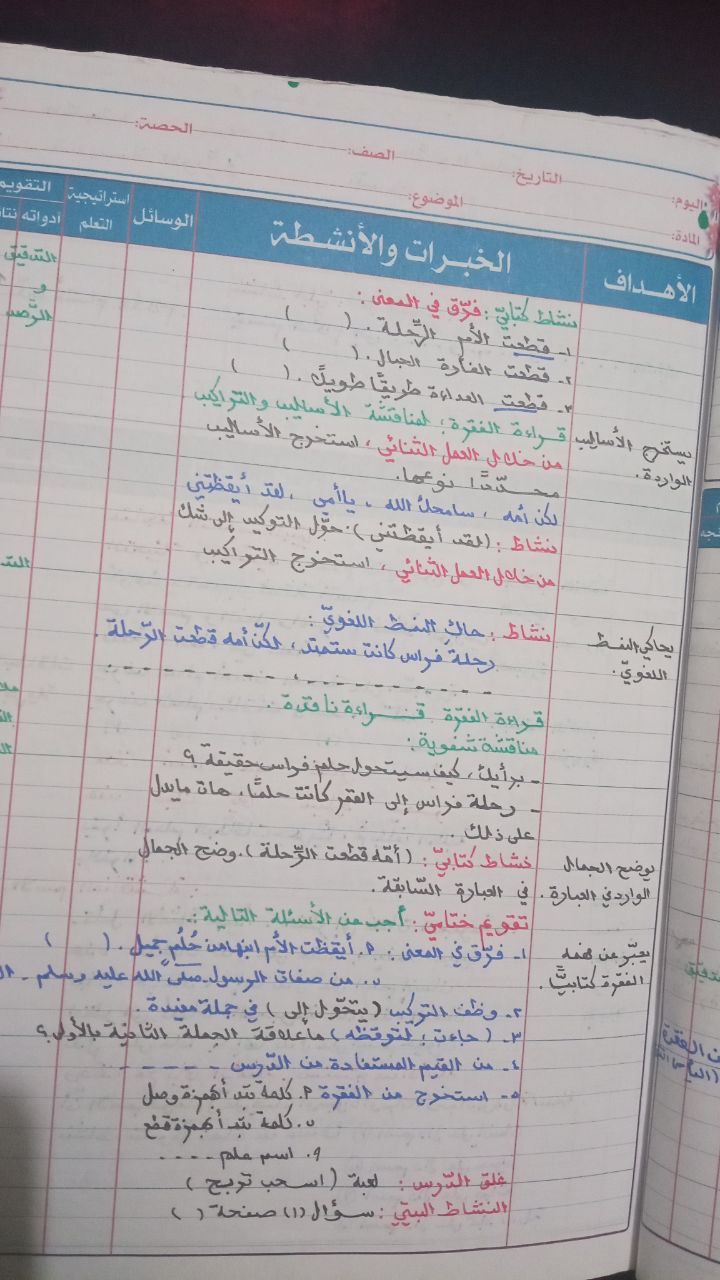 اليوم: التاريخ: الصف: الحصة:
المادة: الموضوع:
الأهداف الخبرات والأنشطة الوسائل استراتيجية التعلم التقويم
أدواته
نشاط كتابيّ: فرّق في المعنى:
١- قطعت الأم الرّحلة. ( )
٢- قطعت الفأرة الحبال. ( )
٣- قطعت العداءة طريقًا طويلًا. ( )
التدقيق
و
الرّصد
يستخرج الأساليب الواردة.
قراءة الفقرة؛ لمناقشة الأساليب والتراكيب
من خلال العمل الثنائي، استخرج الأساليب
محدّدًا نوعها.
لكن أمه، سامحك الله، ياأمي، لقد أيقظتني
نشاط: (لقد أيقظتني). حوّل التوكيد إلى شك
من خلال العمل الثنائي، استخرج التراكيب
يحاكي النمط اللغويّ.
نشاط: حاكِ النمط اللغويّ:
رحلة فراس كانت ستمتد، لكنّ أمه قطعت الرّحلة.
- - - - - - - - - ، - - - - - - - - -
قراءة الفقرة قراءة ناقدة.
مناقشة شفوية:
- برأيك، كيف سيتحول حلم فراس حقيقة؟
- رحلة فراس إلى القمر كانت حلمًا، هات مايدل
على ذلك.
يوضح الجمال الوارد في العبارة.
نشاط كتابيّ: (أمّه قطعت الرّحلة). وضح الجمال
في العبارة السّابقة.
تقويم ختاميّ: أجب عن الأسئلة التالية:
يعبّر عن فهمه الفقرة كتابيًّا.
١- فرّق في المعنى: ٩. أيقظت الأم ابنها من حُلُمٍ جميل. ( )
ں. من صفات الرسول صلى الله عليه وسلم -
٢- وظف التركيب (يتحّول إلى) في جملة مفيدة.
٣- (جاءت؛ لتوقظه) ماعلاقة الجملة الثانية بالأولى؟
٤- من القيم المستفادة من الدّرس - - - - -
٥- استخرج من الفقرة ٩. كلمة تبدأ بهمزة وصل
ں. كلمة تبدأ بهمزة قطع
اسم علم - - - -
غلق الدّرس: لعبة (اسحب تربح)
النشاط البيتي: سؤال (١) صفحة ( )